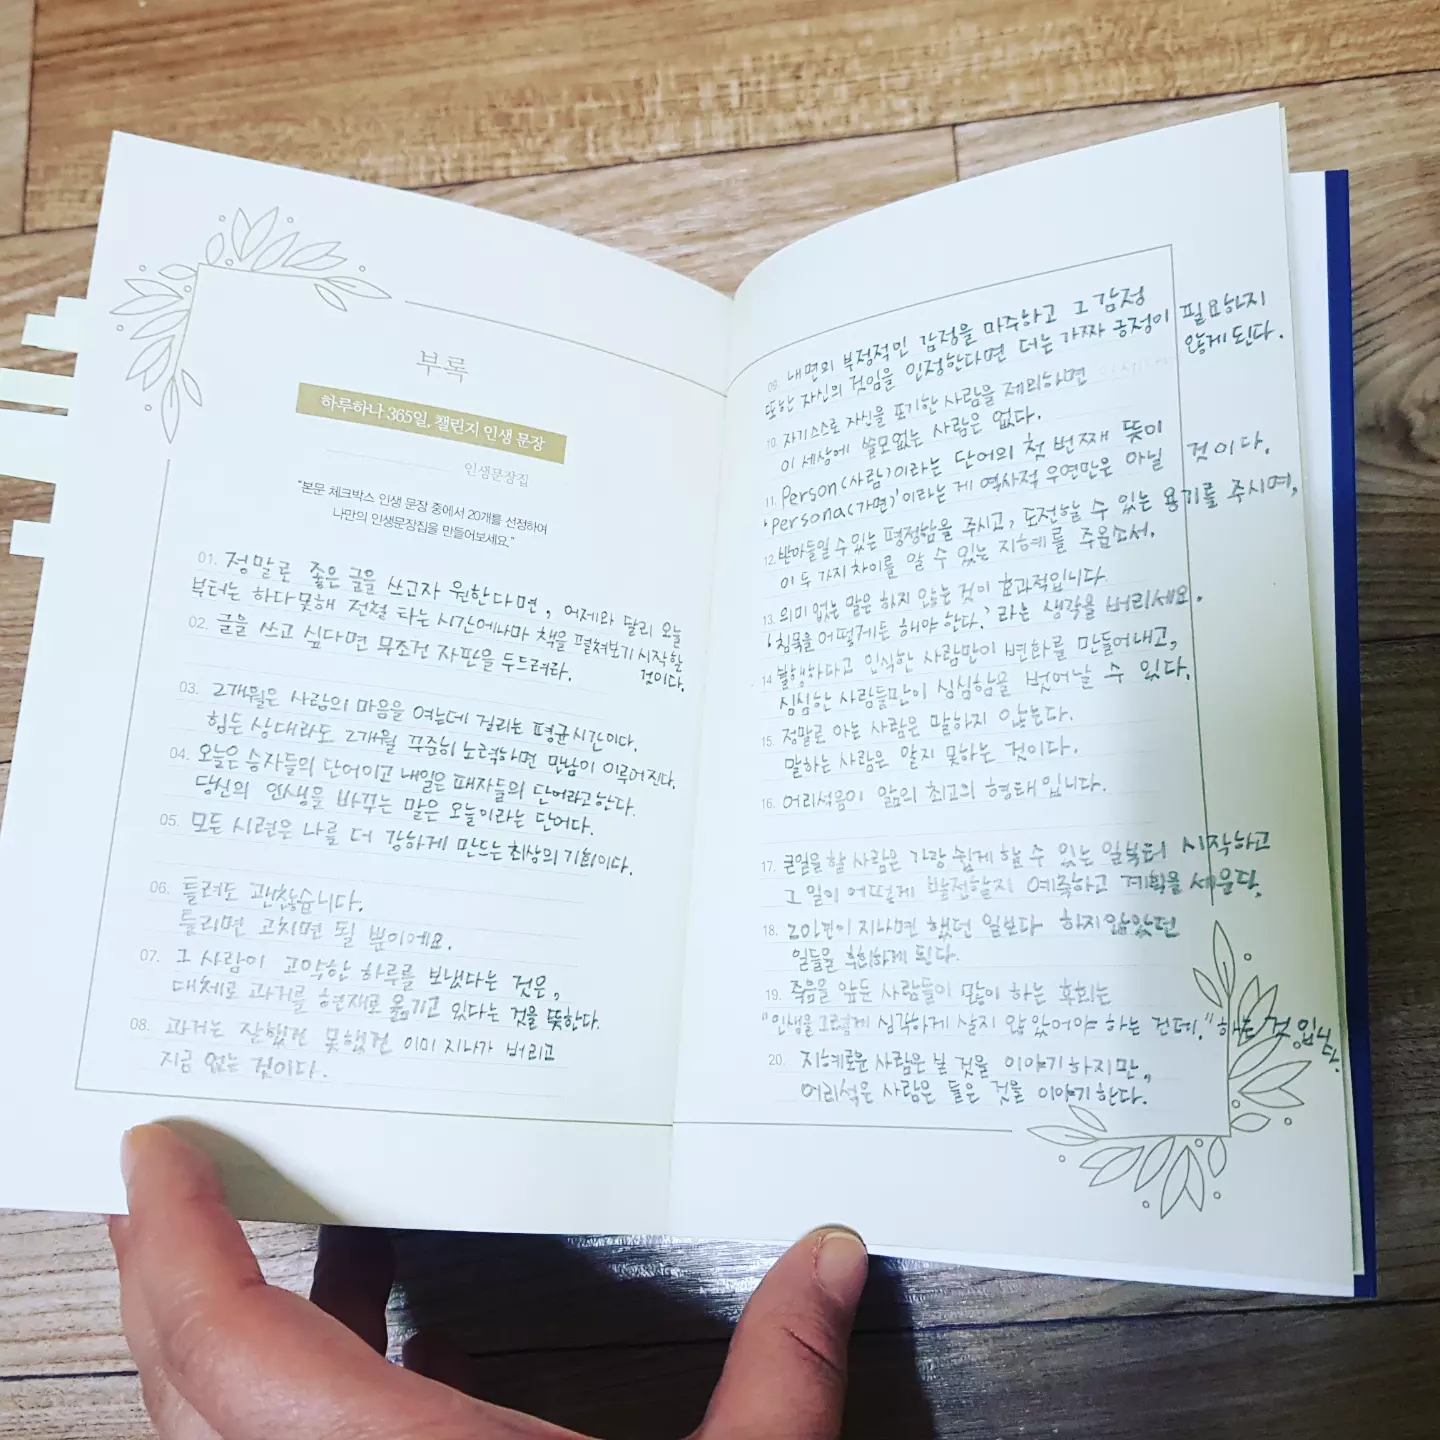 부록
하루하나 365일, 챌린지 인생 문장
인생문장집
"본문 체크박스 인생 문장 중에서 20개를 선정하여
나만의 인생문장집을 만들어보세요."
01. 정말로 좋은 글을 쓰고자 원한다면, 어제와 달리 오늘
부터는 하다못해 전철 타는 시간에나마 책을 펼쳐보기 시작할
것이다.
02. 글을 쓰고 싶다면 무조건 자판을 두드려라.
03. 2개월은 사람의 마음을 여는데 걸리는 평균시간이다.
힘든 상대라도 2개월 꾸준히 노력하면 만남이 이루어진다.
04. 오늘은 승자들의 단어이고 내일은 패자들의 단어라고한다.
당신의 인생을 바꾸는 말은 오늘이라는 단어다.
05. 모든 시련은 나를 더 강하게 만드는 최상의 기회이다.
06. 틀려도 괜찮습니다.
틀리면 고치면 될 뿐이에요.
07. 그 사람이 고약한 하루를 보냈다는 것은,
대체로 과거를 현재로 옮기고 있다는 것을 뜻한다.
08. 과거는 잘했건 못했건 이미 지나가 버리고
지금 없는 것이다.
09. 내면의 부정적인 감정을 마주하고 그 감정
또한 자신의 것임을 인정한다면 더는 가짜 긍정이 필요하지
않게 된다.
10. 자기 스스로 자신을 포기한 사람을 제외하면
이 세상에 쓸모없는 사람은 없다.
11. Person(사람)이라는 단어의 첫 번째 뜻이
'Persona(가면)'이라는 게 역사적 우연만은 아닐 것이다.
12. 받아들일 수 있는 평정함을 주시고, 도전할 수 있는 용기를 주시며,
이 두 가지 차이를 알 수 있는 지혜를 주옵소서.
13. 의미 없는 말은 하지 않는 것이 효과적입니다.
'침묵을 어떻게든 해야 한다.'라는 생각을 버리세요.
14. 불행하다고 인식한 사람만이 변화를 만들어내고,
심심한 사람들만이 심심함을 벗어날 수 있다.
15. 정말로 아는 사람은 말하지 않는다.
말하는 사람은 알지 못하는 것이다.
16. 어리석음이 앎의 최고의 형태입니다.
17. 큰일을 할 사람은 가장 쉽게 할 수 있는 일부터 시작하고
그 일이 어떻게 발전할지 예측하고 계획을 세운다.
18. 20년이 지나면 했던 일보다 하지않았던
일들을 후회하게 된다.
19. 죽음을 앞둔 사람들이 많이 하는 후회는
"인생을 그렇게 심각하게 살지 않았어야 하는 건데." 하는 것입니다.
20. 지혜로운 사람은 본 것을 이야기하지만,
어리석은 사람은 들은 것을 이야기한다.